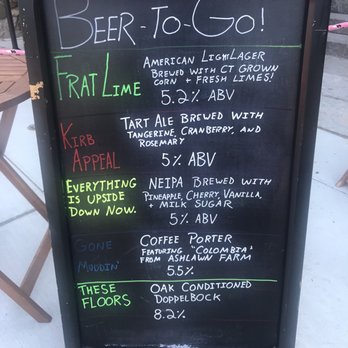 BEER-TO-GO!
FRAT LIME
AMERICAN LIGHT LAGER
BREWED WITH CT GROWN
CORN + FRESH LIMES!
5.2% ABV
KIRB
APPEAL
TART ALE BREWED WITH
TANGERINE, CRANBERRY, AND
ROSEMARY
5% ABV
EVERYTHING
IS UPSIDE
DOWN NOW.
NEIPA BREWED WITH
PINEAPPLE, CHERRY, VANILLA,
+ MILK SUGAR
5% ABV
GONE
MUDDIN'
COFFEE PORTER
FEATURING "COLOMBIA"
FROM ASHLAWN FARM
5.5%
THESE
FLOORS
OAK CONDITIONED
DOPPELBOCK
8.2%